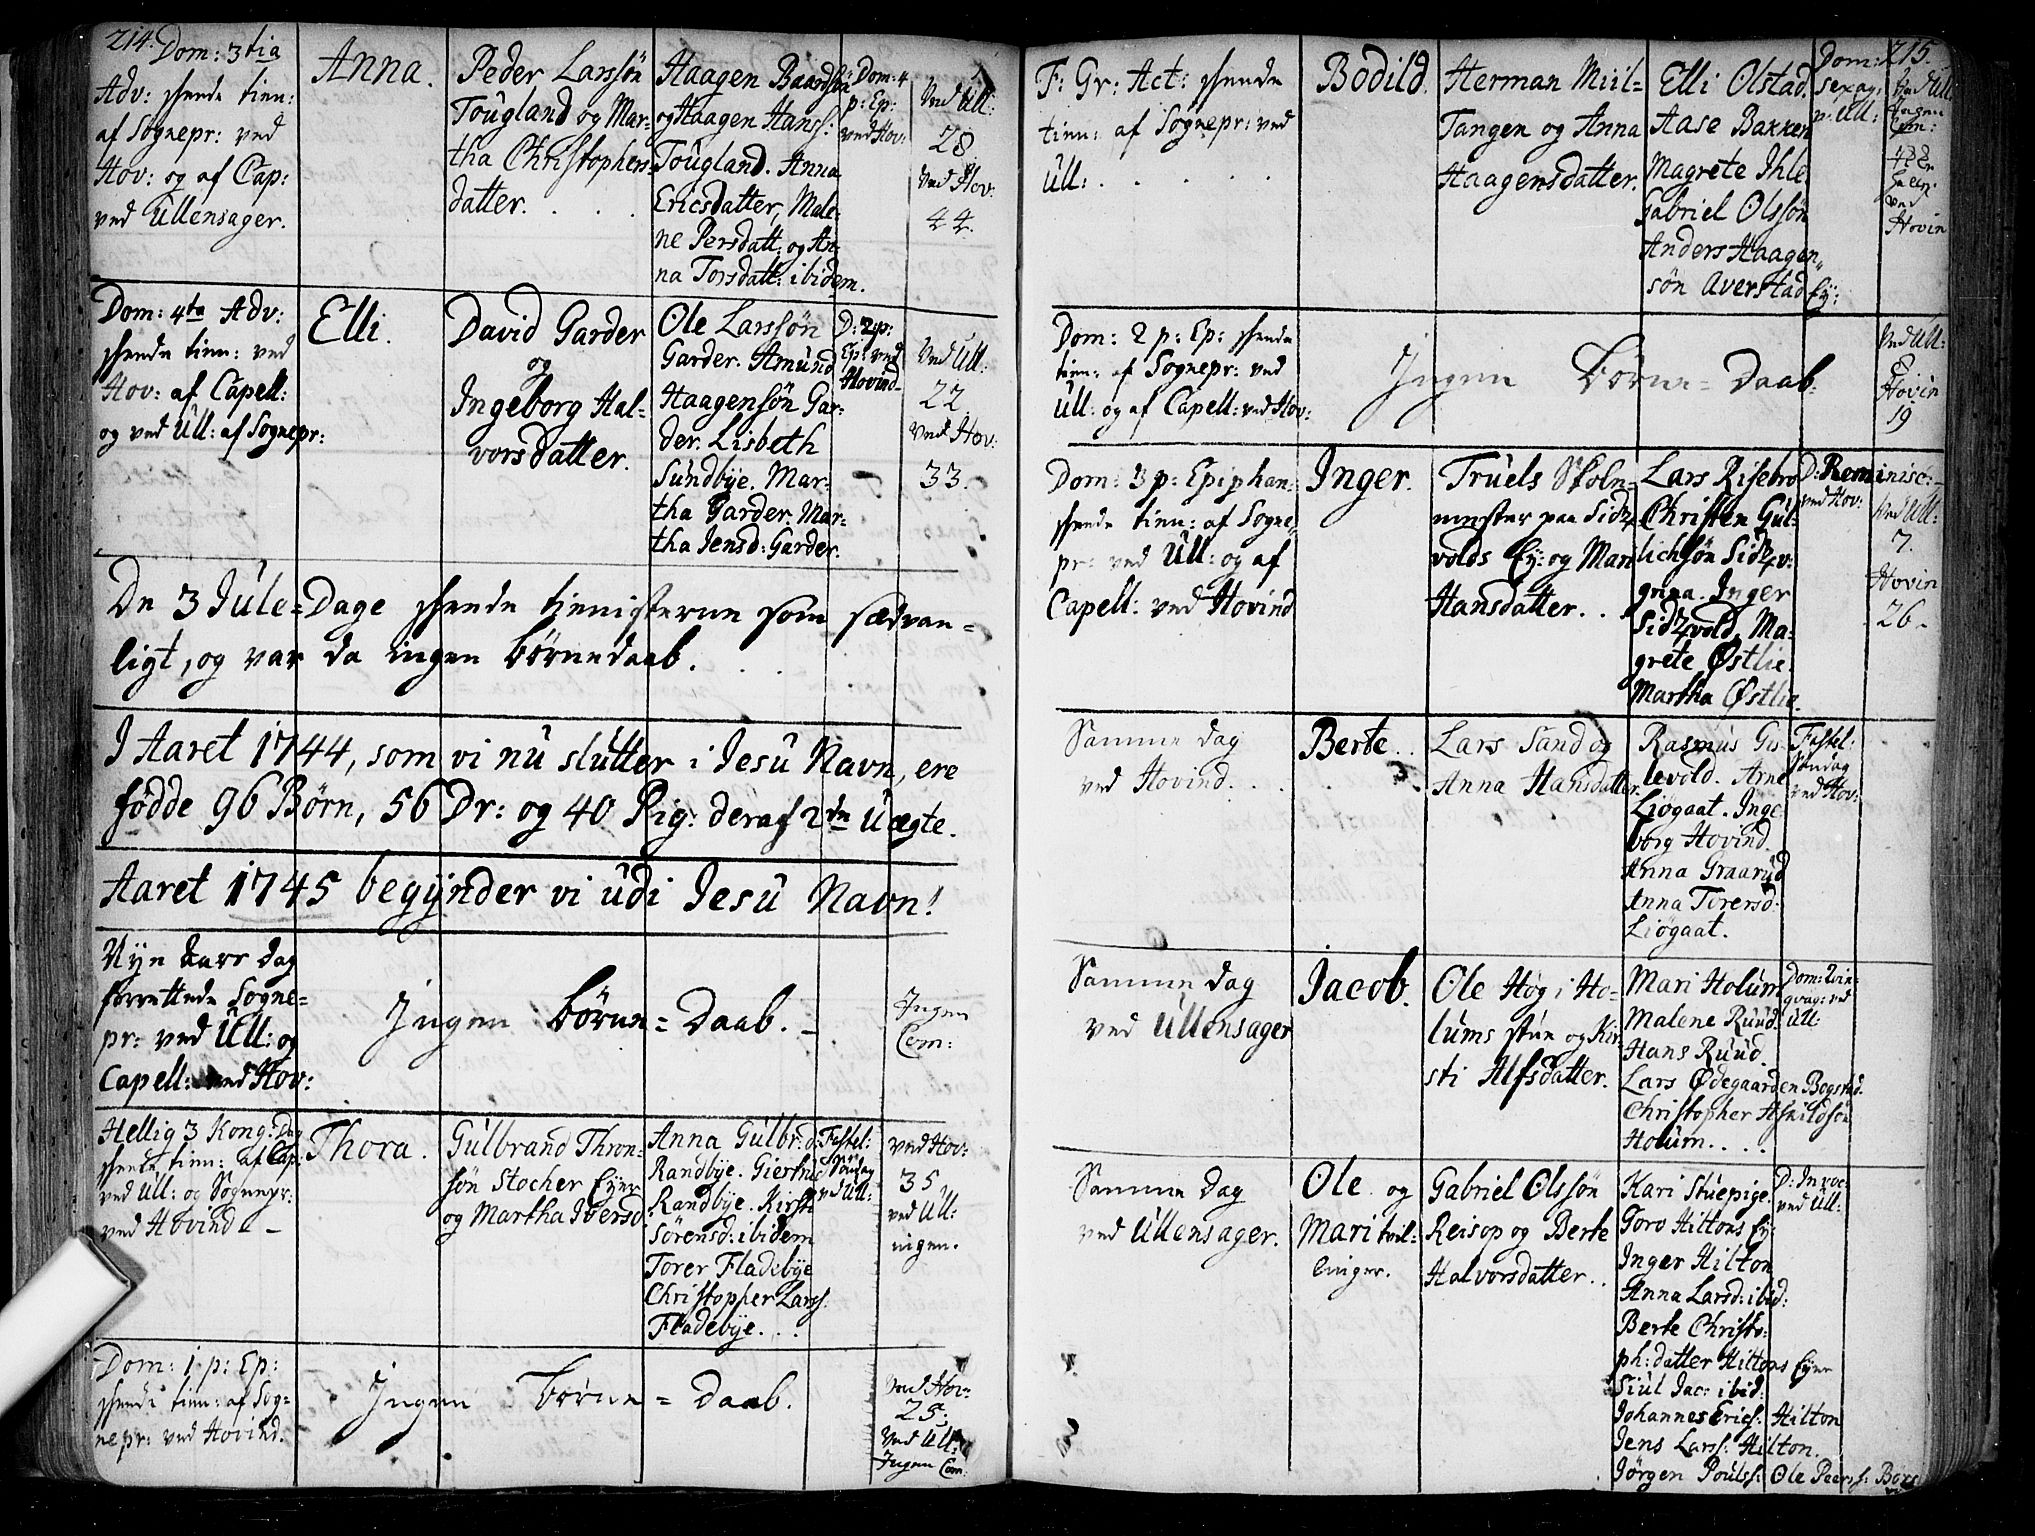 214.
Dom: 3tia
Adv: skeede tien:
af Sognepr: ved
Hov: og af Cap:
ved Ullensager.
Anna.
Peder Larssön
Tougland og Mar-
tha Christophers-
datter. . . .
Haagen Baardsön
og Haagen Hanss:
Tougland. Anna
Ericsdatter, Male-
ne Persdatt: og An-
na Torsdatt: ibidem.
Dom: 4
p: Ep:
ved Hov:
Ved Ull:
28
Ved Hov:
44.
Dom: 4ta Adv:
skeede tien: ved
Hov: af Capell:
og ved Ull: af Sognepr:
Elli.
David Garder
og
Ingeborg Hal-
vorsdatter.
Ole Larssön
Garder. Amund
Haagensön Gar-
der. Lisbeth
Sundbÿe. Mar-
tha Garder. Mar-
tha Jensd: Garder.
D: 2 p:
Ep: ved
Hovind-
Ved Ull:
22
Ved Hov:
33.
De 3 Jule-Dage skeede tienisterne som sædvan-
ligt, og var da ingen börnedaab. . .
I Aaret 1744, som vi nu slutter i Jesu Navn, ere
födde 96 Börn, 56 Dr: og 40 Pig: deraf 2de Uægte.
Aaret 1745 begÿnder vi udi Jesu Navn!
Nÿe Aars dag
forrettede Sogne-
pr: ved Ull: og
Capell: ved Hov:
Ingen börne-Daab. -
Ingen
Com:
Hellig 3 Kong: Dag
skeede tien: af Cap:
ved Ull: og Sognepr:
ved Hovind -
Thora.
Gulbrand Thron-
sön Stocher Eyer
og Martha Iversd
Anna Gulbr:d:
Randbÿe. Giertrud
Randbÿe. Kirsti
Sörensd: ibidem
Torer Fladebÿe
Christopher Larss:
Fladebÿe. . .
Fastel:
Söndag
ved Ull:
ved Hov:
35,
ved Ull:
ingen.
Dom: 1 p: Ep:
skeede tien: af Sog-
nepr: ved Hovind.
Ingen börne-Daab.
Ved Hov:
25:
Ved Ull:
Ingen Com:
215.
F: Gr: Act: skeede
tien: af Sognepr: ved
Ull: . . . .
Bodild.
Herman Miil-
Tangen og Anna
Haagensdatter.
Elli Olstad.
Aase Bakken
Magrete Ihle
Gabriel Olssön
Anders Haagen-
sön Averstad Ey:
Dom:
Sexag:
p: Ull:
Ved Ull:
Ingen
Com:
ved
Hovin
Dom: 2 p: Ep: skeede
tien: af Sognepr: ved
Ull: og af Capell: ved Hov:
Ingen börne-Daab.
Ved Ull:
8
Hovin
19
Dom: 3 p: Epiphan:
skeede tien: af Sogne-
pr: ved Ull: og af
Capell: ved Hovind
Inger.
Truels Skole-
mester paa Sidz-
volds Ey: og Mari
Hansdatter. . .
Lars Risebro
Christen Gul-
lichsön Sidzv:
grina. Inger
Sidzvold, Ma-
grete Östlie.
Martha Östlie.
D: Reminisc:
ved Hov:
Ved Ull:
7.
Hovin
26-
Samme dag
ved Hovind. . .
Berte. .
Lars Sand og
Anna Hansdatter.
Rasmus Gis-
levold. Arne
Liögaat. Inge-
borg Hovind.
Anna Graarud
Anna Torersd:
Liögaat.
Fastel:
Söndag
ved Hov:
Samme dag
ved Ullensager
Jacob.
Ole Hög i Ho-
lums stue og Kir-
sti Alfsdatter.
Mari Holum
Malene Ruud.
Hans Ruud.
Lars Ödegaarden Bogstad.
Christopher Asnildsön
Holum. . . .
Dom: Qvin-
qvag: ved
Ull:
Samme Dag
ved Ullensager.
Ole og
Mari tvil-
linger.
Gabriel Olssön
Reisop og Berte
Halvorsdatter. .
Kari Stuepige.
Toro Hiltons Ey
Inger Hilton
Anna Larsd: ibid:
Berte Christo-
ph: datter Hiltons Eyer
Siul Jac: ibid:
Johannes Erics: Hilton
Jens Larss: Hilton.
Jörgen Poulss: Ole Peerss:
D: Invoc:
ved Ull: